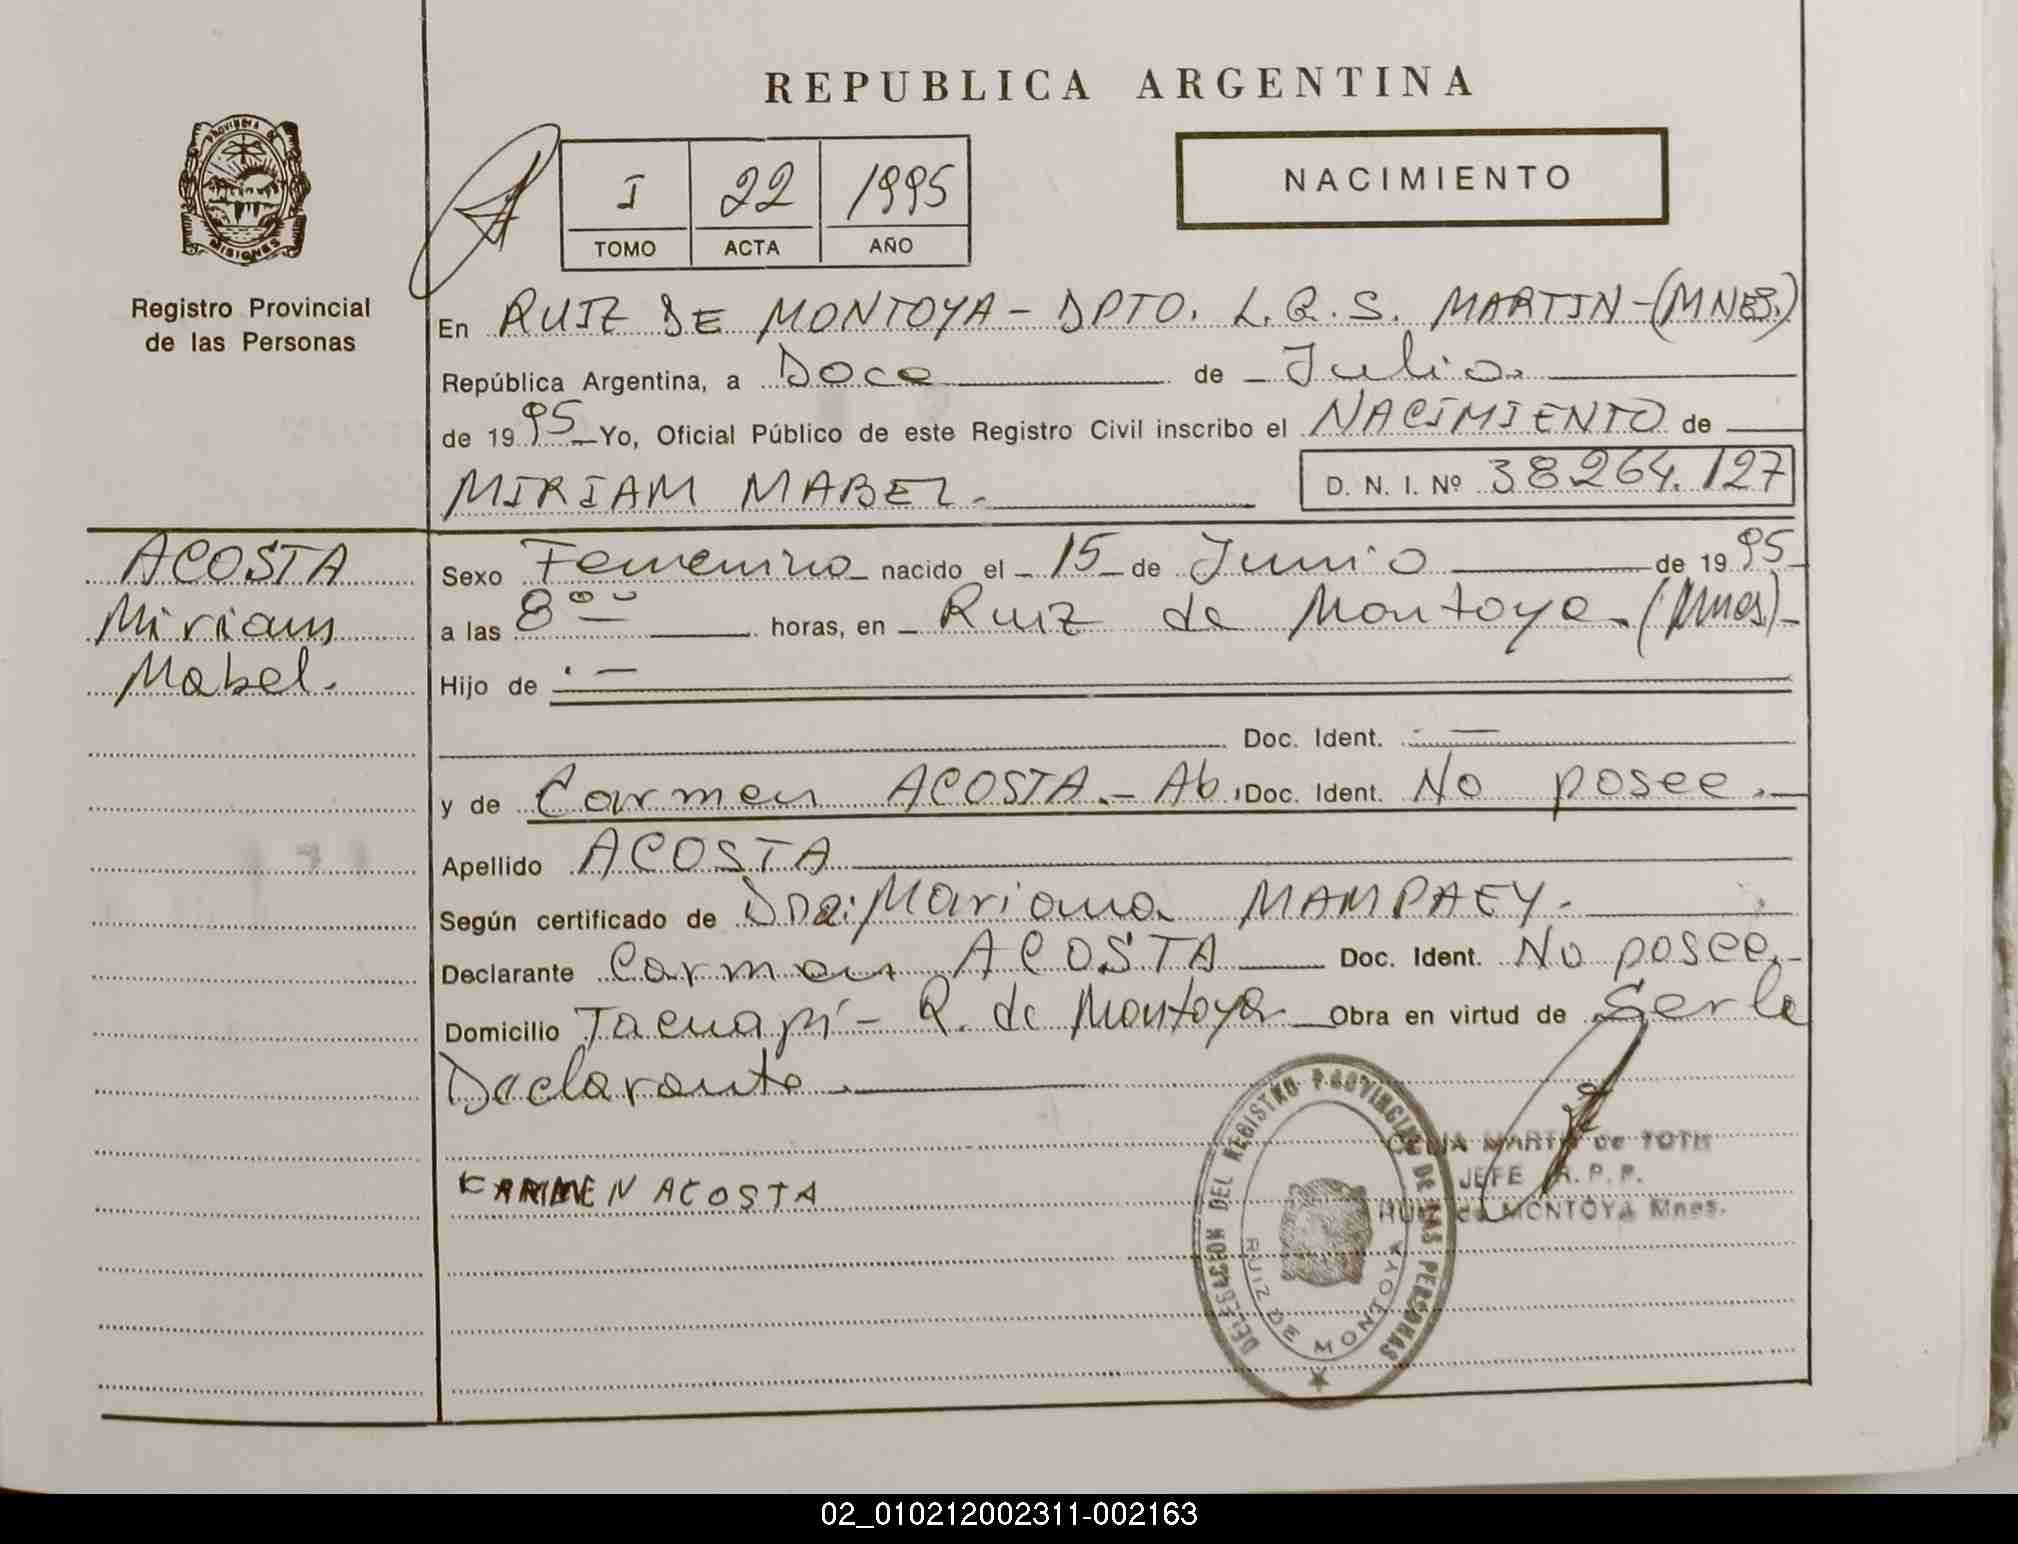 REPUBLICA ARGENTINA
PROVINCIA DE
MISIONES
Registro Provincial
de las Personas
I 22 1995
TOMO ACTA AÑO
NACIMIENTO
En RUIZ DE MONTOYA - DPTO. L. G. S. MARTIN - (MNES.)
República Argentina, a Doce de Julio.
de 1995 Yo, Oficial Público de este Registro Civil inscribo el NACIMIENTO de
MIRIAM MABEL.- D. N. I. Nº 38264.127
ACOSTA
Miriam
Mabel.
Sexo Femenino nacido el 15 de Junio de 1995
a las 8 00 horas, en Ruiz de Montoya (Mnes)-
Hijo de . —
Doc. Ident. . —
y de Carmen ACOSTA.- Ab. Doc. Ident. No posee.-
Apellido ACOSTA
Según certificado de Dra: Mariana MAMPAEY.-
Declarante Carmen ACOSTA Doc. Ident. No posee.-
Domicilio Tacuapí - R. de Montoya Obra en virtud de Ser la
Declarante.
CARMEN ACOSTA
DELEGACION DEL REGISTRO PROVINCIAL DE LAS PERSONAS
RUIZ DE MONTOYA
MARTA de TOTH
JEFE R. P. P.
RUIZ de MONTOYA Mnes.
02_010212002311-002163